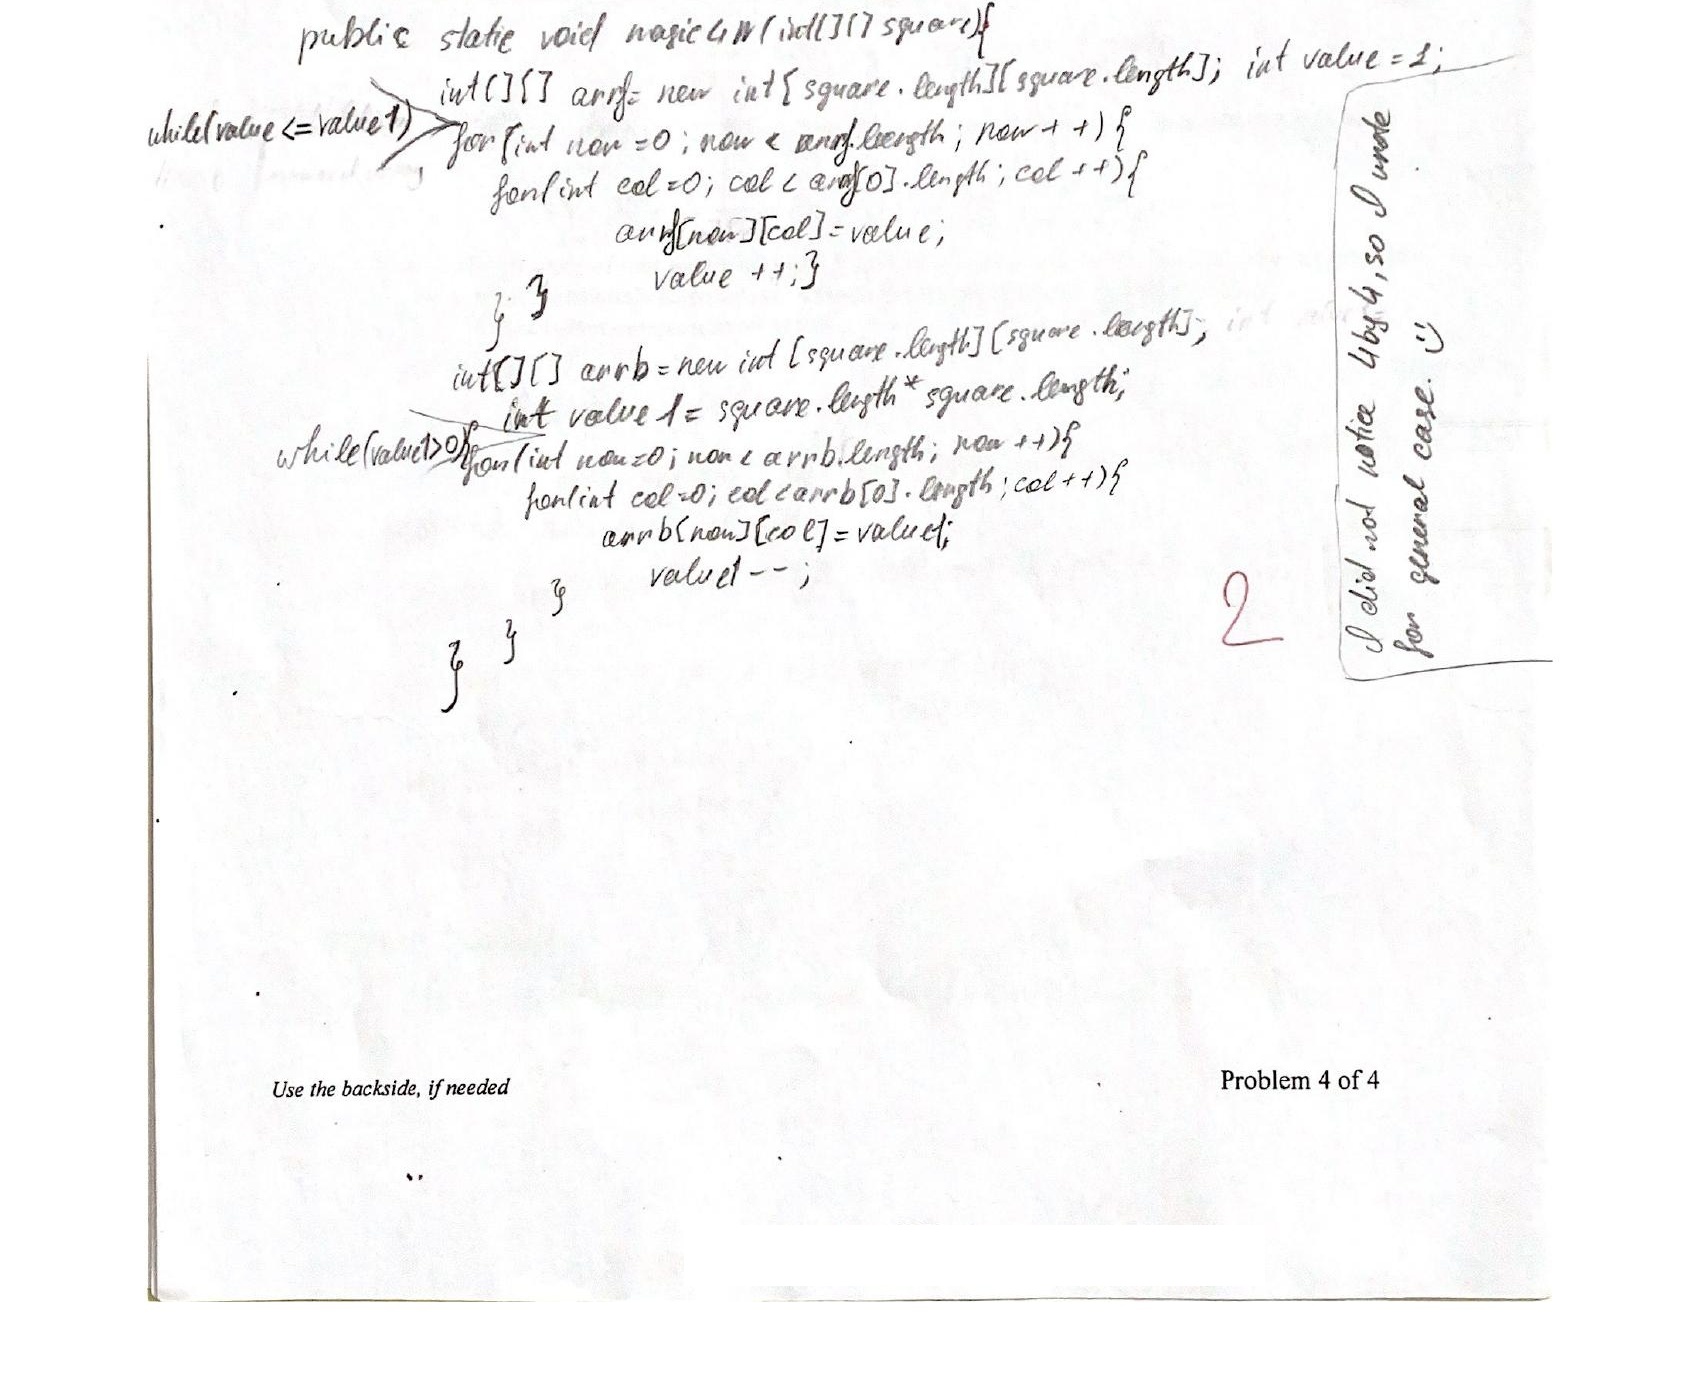 public static void magic4N(int[][] square){
int[][] arrf= new int[square.length][square.length]; int value = 1;
while(value <= value1)
for(int row =0; row < arrf.length; row++){
for(int col=0; col < arrf[0].length; col++){
arrf[row][col]=value;
value ++;}
} }
int[][] arrb = new int [square.length][square.length];
int value1= square.length * square.length;
while(value1>0){
for(int row=0; row < arrb.length; row ++){
for(int col=0; col < arrb[0].length; col++){
arrb[row][col]=value1;
value1--;
}
}
}
2
I did not notice 4by4, so I wrote
for general case. :)
Use the backside, if needed
Problem 4 of 4